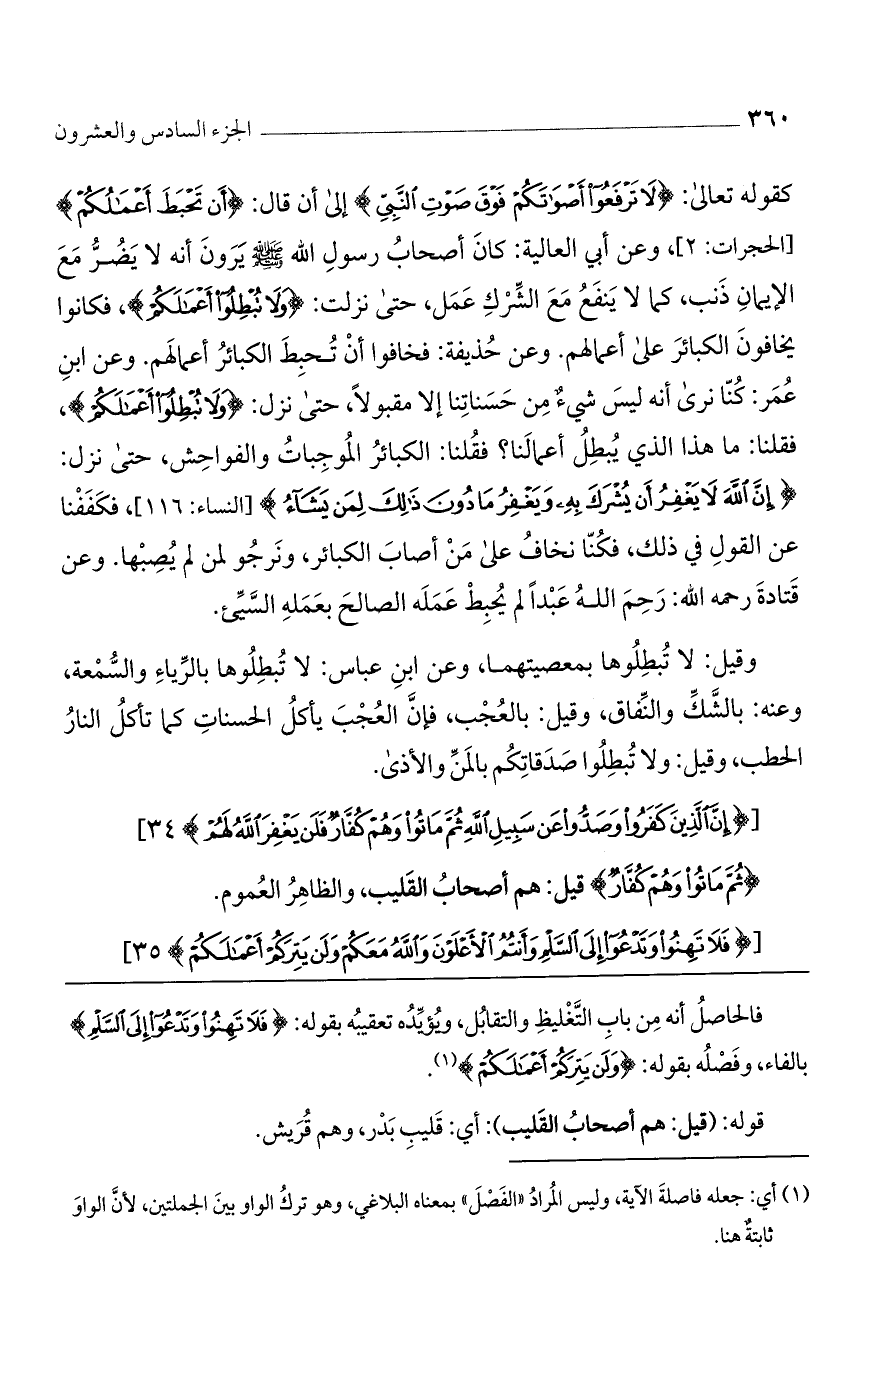 ٣٦٠ الجزء السادس والعشرون
كقوله تعالىٰ: ﴿لَا تَرْفَعُوٓا۟ أَصْوَٰتَكُمْ فَوْقَ صَوْتِ ٱلنَّبِيِّ﴾ إلىٰ أن قال: ﴿أَن تَحْبَطَ أَعْمَٰلُكُمْ﴾
[الحجرات: ٢]، وعن أبي العالية: كانَ أصحابُ رسولِ الله ﷺ يَرَونَ أنه لا يَضُـرُّ مَعَ
الإيمانِ ذَنب، كما لا يَنفَعُ مَعَ الشِّرْكِ عَمَل، حتىٰ نزلت: ﴿وَلَا تُبْطِلُوٓا۟ أَعْمَٰلَكُمْ﴾، فكانوا
يخافونَ الكبائرَ علىٰ أعمالهم. وعن حُذيفة: فخافوا أنْ تُـحبِطَ الكبائرُ أعمالَهم. وعن ابنِ
عُمَر: كُنّا نرىٰ أنه ليسَ شيءٌ مِن حَسَناتِنا إلا مقبولاً، حتىٰ نزل: ﴿وَلَا تُبْطِلُوٓا۟ أَعْمَٰلَكُمْ﴾،
فقلنا: ما هذا الذي يُبطِلُ أعمالَنا؟ فقُلنا: الكبائرُ المُوجِباتُ والفواحِش، حتىٰ نزل:
﴿إِنَّ ٱللَّهَ لَا يَغْفِرُ أَن يُشْرَكَ بِهِۦ وَيَغْفِرُ مَا دُونَ ذَٰلِكَ لِمَن يَشَآءُ﴾ [النساء: ١١٦]، فكَفَفْنا
عن القولِ في ذلك، فكُنّا نخافُ علىٰ مَنْ أصابَ الكبائر، ونَرجُو لمن لم يُصِبْها. وعن
قَتادةَ رحمه الله: رَحِمَ اللـهُ عَبْداً لم يُحبِطْ عَمَلَه الصالحَ بعَمَلهِ السَّيِّئ.
وقيل: لا تُبطِلُوها بمعصيتهمـا، وعن ابنِ عباس: لا تُبطِلُوها بالرِّياءِ والسُّمْعة،
وعنه: بالشَّكِّ والنِّفاق، وقيل: بالعُجْب، فإنَّ العُجْبَ يأكلُ الحسناتِ كما تأكلُ النارُ
الحطب، وقيل: ولا تُبطِلُوا صَدَقاتِكُم بالمَنِّ والأذىٰ.
[﴿إِنَّ ٱلَّذِينَ كَفَرُوا۟ وَصَدُّوا۟ عَن سَبِيلِ ٱللَّهِ ثُمَّ مَاتُوا۟ وَهُمْ كُفَّارٌ فَلَن يَغْفِرَ ٱللَّهُ لَهُمْ﴾ ٣٤]
﴿ثُمَّ مَاتُوا۟ وَهُمْ كُفَّارٌ﴾ قيل: هم أصحابُ القَليب، والظاهِرُ العُموم.
[﴿فَلَا تَهِنُوا۟ وَتَدْعُوٓا۟ إِلَى ٱلسَّلْمِ وَأَنتُمُ ٱلْأَعْلَوْنَ وَٱللَّهُ مَعَكُمْ وَلَن يَتِرَكُمْ أَعْمَٰلَكُمْ﴾ ٣٥]
فالحاصلُ أنه مِن بابِ التَّغْليظِ والتقابُل، ويُؤيِّدُه تعقيبُه بقوله: ﴿فَلَا تَهِنُوا۟ وَتَدْعُوٓا۟ إِلَى ٱلسَّلْمِ﴾
بالفاء، وفَصْلُه بقوله: ﴿وَلَن يَتِرَكُمْ أَعْمَٰلَكُمْ﴾(١).
قوله: (قيل: هم أصحابُ القَليب): أي: قَليبِ بَدْر، وهم قُرَيش.
(١) أي: جعله فاصلةَ الآية، وليس المُرادُ «الفَصْلَ» بمعناه البلاغي، وهو تركُ الواو بينَ الجملتين، لأنَّ الواوَ
ثابتةٌ هنا.